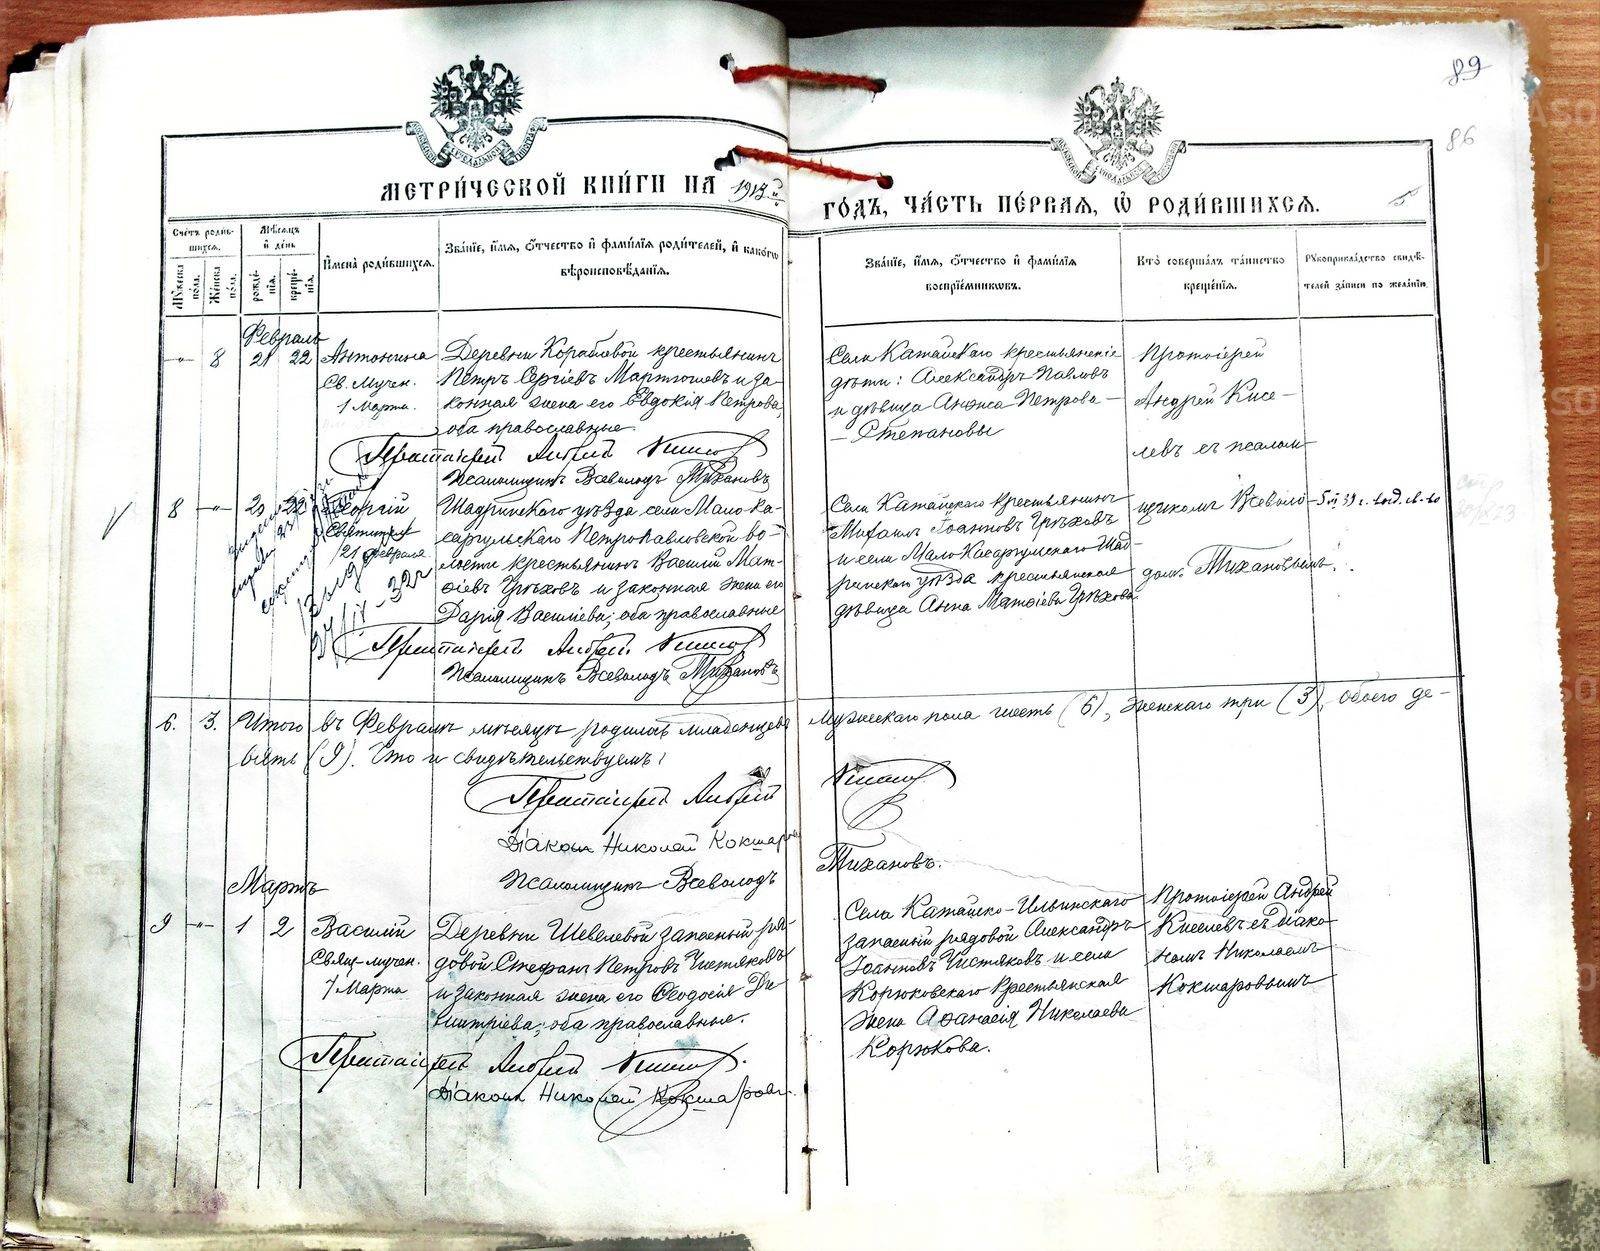 89
86
МЕТРИ́ЧЕСКОЙ КНИ́ГИ НА 1913й
ГО́ДЪ, ЧА́СТЬ ПЕ́РВАЯ, Ѡ РОДИ́ВШИХСЯ.
5
Сче́тъ роди́вшихся.
Мѣ́сяцъ и́ де́нь
И҆мена̀ роди́вшихся.
Зва́нїе, и҆́мя, ѻ҆́тчество и҆ фами́лїя роди́телей, и҆ како́гѡ
вѣроисповѣ́данїя.
Зва́нїе, и҆́мя, ѻ҆́тчество и҆ фами́лїя
воспрїе́мникѡвъ.
Кто̀ соверша́лъ та́инство
креще́нїя.
Рꙋкоприкла́дство свидѣ́-
телей за́писи по жела́нїю.
Мꙋ́жеска по́ла.
Же́нска по́ла.
рожде́нїя.
креще́нїя.
Февраль
-"- 8 21 22 Антонина
Св. Мучен.
1 Марта.
Деревни Корабловой крестьянинъ
Петръ Сергіевъ Мартюшевъ и за-
конная жена его Евдокія Петрова,
оба православные.
Протоіерей Андрей Киселевъ
Псаломщикъ Всеволодъ Тихановъ
Села Катайскаго крестьянскіе
дѣти: Александръ Павловъ
и дѣвица Анфиса Петрова –
– Степановы
Протоіерей
Андрей Кисе-
левъ съ псалом-
8 -"- 22 Георгій
Святит.
21 февраля
Шадринскаго уѣзда села Мало-Ка-
саргульскаго Петропавловской во-
лости крестьянинъ Василій Мат-
ѳіевъ Грѣховъ и законная жена его
Дарія Васильева, оба православные
Протоіерей Андрей Киселевъ
Псаломщикъ Всеволодъ Тихановъ
Села Катайскаго крестьянинъ
Михаилъ Іоанновъ Грѣховъ
и села Мало-Касаргульскаго Шад-
ринскаго уѣзда крестьянская
дѣвица Анна Матѳіева Грѣхова.
щикомъ Всеволо-
домъ Тихановымъ.
6. 3. Итого въ Февралѣ мѣсяцѣ родилось младенцевъ мужескаго пола шесть (6), женскаго три (3), обоего де-
вять (9). Что и свидѣтельствуемъ:
Протоіерей Андрей Киселевъ
Діаконъ Николай Кокшаровъ
Псаломщикъ Всеволодъ Тихановъ.
Мартъ
9 -"- 1 2 Василій
Свящ-мучен.
7 Марта
Деревни Шевелевой запасный ря-
довой Стефанъ Петровъ Чистяковъ
и законная жена его Ѳеодосія Ди-
митріева, оба православные.
Протоіерей Андрей Киселевъ
Діаконъ Николай Кокшаровъ.
Села Катайско-Ильинскаго
запасный рядовой Александръ
Іоанновъ Чистяковъ и села
Корюковскаго крестьянская
жена Аѳанасія Николаева
Корюкова.
Протоіерей Андрей
Киселевъ съ діако-
номъ Николаемъ
Кокшаровымъ